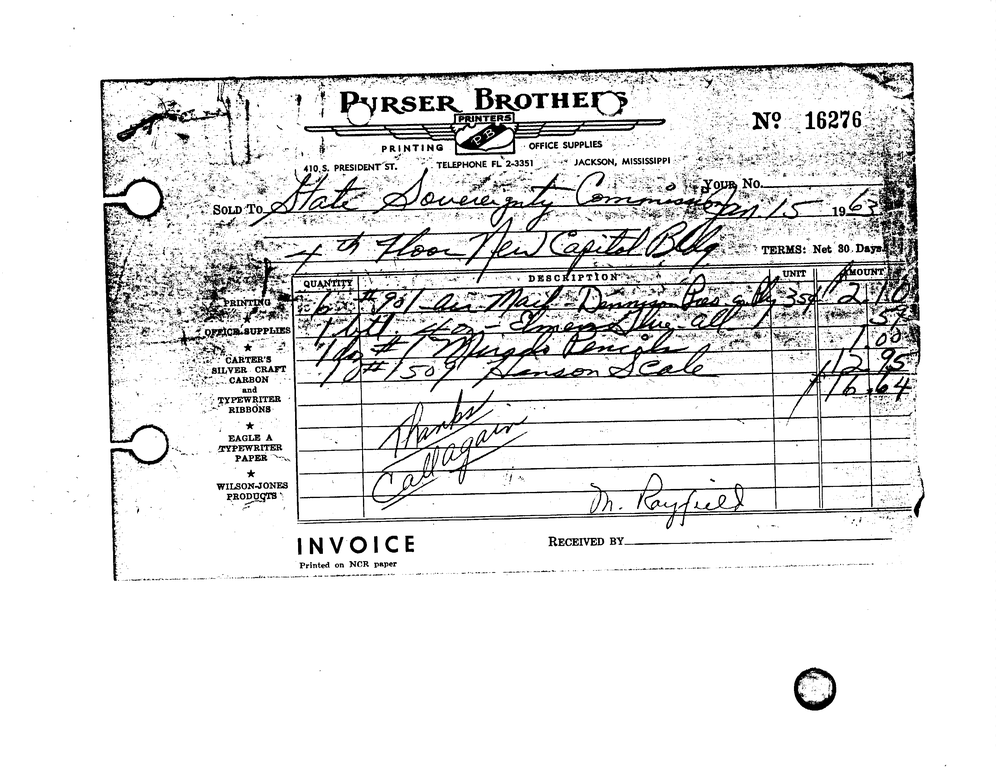 PURSER BROTHERS
PRINTERS
PB
PRINTING OFFICE SUPPLIES
Nº 16276
410 S. PRESIDENT ST. TELEPHONE FL 2-3351 JACKSON, MISSISSIPPI
YOUR NO.
SOLD TO State Sovereignty Commission Jan 15 1963
4th Floor New Capitol Bldg TERMS: Net 30 Days
QUANTITY DESCRIPTION UNIT AMOUNT
6 #901 Air Mail Dennison 35¢ 2 10
1 btl. 4 oz - Elmers Glue-all 59
1 dz # 1 Mirado Pencils 1 00
1 # 1509 Hanson Scale 12 95
16.64
Thanks
Call again
M. Rayfield
PRINTING
★
OFFICE SUPPLIES
★
CARTER'S
SILVER CRAFT
CARBON
and
TYPEWRITER
RIBBONS
★
EAGLE A
TYPEWRITER
PAPER
★
WILSON-JONES
PRODUCTS
INVOICE RECEIVED BY
Printed on NCR paper